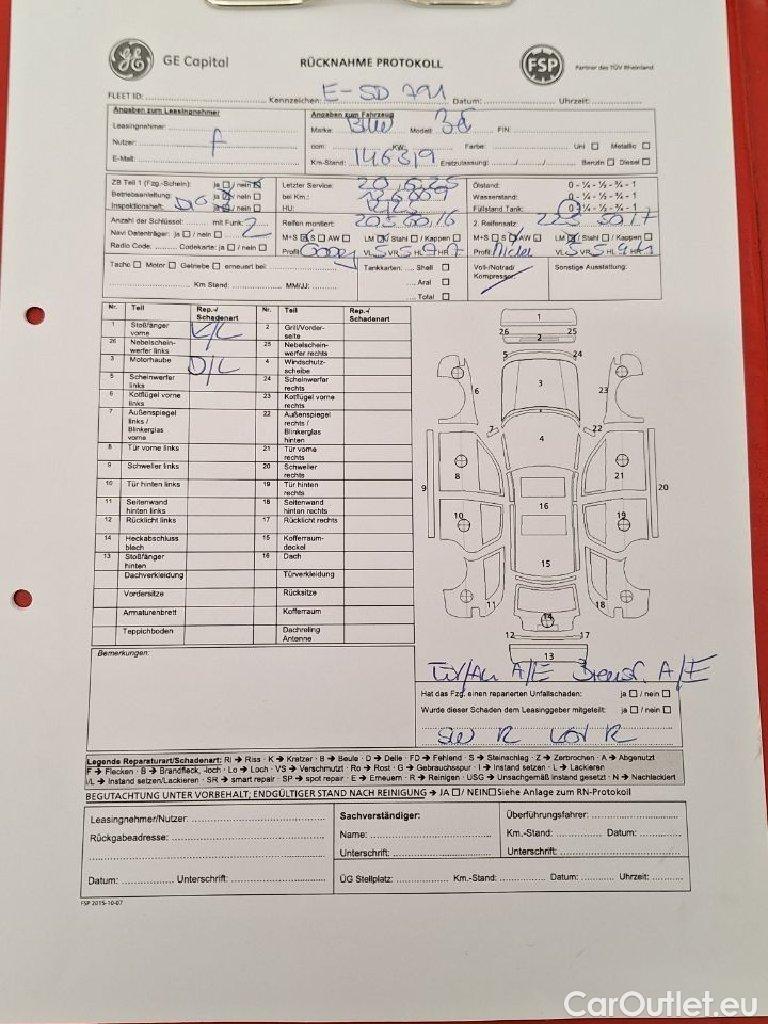 GE Capital RÜCKNAHME PROTOKOLL FSP Partner des TÜV Rheinland
FLEET ID: Kennzeichen: E-SD 791 Datum: Uhrzeit:
Angaben zum Leasingnehmer
Leasingnehmer:
Nutzer:
E-Mail:
Angaben zum Fahrzeug
Marke: BMW Modell: FIN:
ccm: KW: Farbe: Uni ☐ Metallic ☐
Km-Stand: 146319 Erstzulassung: / / Benzin ☐ Diesel ☐
ZB Teil 1 (Fzg.-Schein): ja ☐ / nein
Betriebsanleitung: ja / nein
Inspektionsheft: ja / nein
Letzter Service:
bei Km.:
HU:
Ölstand: 0 - ¼ - ½ - ¾ - 1
Wasserstand: 0 - ¼ - ½ - ¾ - 1
Füllstand Tank: 0 - ¼ - ½ - ¾ - 1
Anzahl der Schlüssel: mit Funk: 2
Navi Datenträger: ja ☐ / nein ☐
Radio Code: Codekarte: ja ☐ / nein ☐
Reifen montiert: 205 60 16
M+S S ☐ AW ☐ LM Stahl ☐ / Kappen ☐
Profil VL 5 VR 5 HL 7 HR 7
2. Reifensatz: 225 50 17
M+S ☐ S AW ☐ LM Stahl ☐ / Kappen ☐
Profil VL 5 VR 5 HL HR
Tacho ☐ Motor ☐ Getriebe ☐ erneuert bei:
Km Stand: MM/JJ: /
Tankkarten: Shell ☐
Aral ☐
Total ☐
Voll-/Notrad/
Kompressor
Sonstige Ausstattung:
Nr. Teil Rep.-/ Schadenart Nr. Teil Rep.-/ Schadenart
1 Stoßfänger vorne K/L 2 Grill/Vorderseite
26 Nebelscheinwerfer links 25 Nebelscheinwerfer rechts
3 Motorhaube D/L 4 Windschutzscheibe
5 Scheinwerfer links 24 Scheinwerfer rechts
6 Kotflügel vorne links 23 Kotflügel vorne rechts
7 Außenspiegel links / Blinkerglas vorne 22 Außenspiegel rechts / Blinkerglas hinten
8 Tür vorne links 21 Tür vorne rechts
9 Schweller links 20 Schweller rechts
10 Tür hinten links 19 Tür hinten rechts
11 Seitenwand hinten links 18 Seitenwand hinten rechts
12 Rücklicht links 17 Rücklicht rechts
14 Heckabschlussblech 15 Kofferraumdeckel
13 Stoßfänger hinten 16 Dach
Dachverkleidung Türverkleidung
Vordersitze Rücksitze
Armaturenbrett Kofferraum
Teppichboden Dachreling Antenne
1
26 2 25
5 24
6 3 23
7 22
4
9 8 21 20
10 16 19
15
11 14 18
12 17
13
Bemerkungen:
A/E A/E
Hat das Fzg. einen reparierten Unfallschaden: ja ☐ / nein ☐
Wurde dieser Schaden dem Leasinggeber mitgeteilt: ja ☐ / nein ☐
R R
Legende Reparaturart/Schadenart: RI → Riss - K → Kratzer - B → Beule - D → Delle - FD → Fehlend - S → Steinschlag - Z → Zerbrochen - A → Abgenutzt
F → Flecken - B → Brandfleck, -loch - Lo → Loch - VS → Verschmutzt - Ro → Rost - G → Gebrauchsspur - I → Instand setzen - L → Lackieren
I/L → Instand setzen/Lackieren - SR → smart repair - SP → spot repair - E → Erneuern - R → Reinigen - USG → Unsachgemäß instand gesetzt - N → Nachlackiert
BEGUTACHTUNG UNTER VORBEHALT; ENDGÜLTIGER STAND NACH REINIGUNG → JA ☐ / NEIN ☐ Siehe Anlage zum RN-Protokoll
Leasingnehmer/Nutzer:
Rückgabeadresse:
Datum: Unterschrift:
Sachverständiger:
Name:
Unterschrift:
Überführungsfahrer:
Km.-Stand: Datum:
Unterschrift:
ÜG Stellplatz: Km.-Stand: Datum: Uhrzeit:
FSP 2015-10-07
CarOutlet.eu